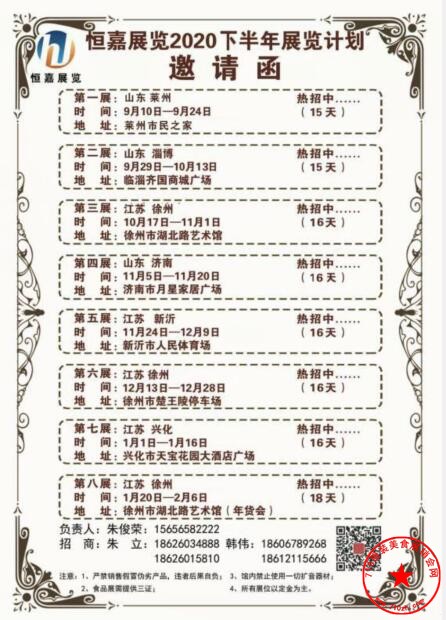 恒嘉展览
恒嘉展览2020下半年展览计划
邀请函
第一展：山东 莱州 热招中......
时 间：9月10日—9月24日 （15天）
地 址：莱州市民之家
第二展：山东 淄博 热招中......
时 间：9月29日—10月13日 （15天）
地 址：临淄齐国商城广场
第三展：江苏 徐州 热招中......
时 间：10月17日—11月1日 （16天）
地 址：徐州市湖北路艺术馆
第四展：山东 济南 热招中......
时 间：11月5日—11月20日 （16天）
地 址：济南市月星家居广场
第五展：江苏 新沂 热招中......
时 间：11月24日—12月9日 （16天）
地 址：新沂市人民体育场
第六展：江苏 徐州 热招中......
时 间：12月13日—12月28日 （16天）
地 址：徐州市楚王陵停车场
第七展：江苏 兴化 热招中......
时 间：1月1日—1月16日 （16天）
地 址：兴化市天宝花园大酒店广场
第八展：江苏 徐州 热招中......
时 间：1月20日—2月6日 （18天）
地 址：徐州市湖北路艺术馆（年货会）
负责人：朱俊荣：15656582222
招 商：朱 立：18626034888 韩伟：18606789268
18626015810 18612115666
注意：1、严禁销售假冒伪劣产品，违者后果自负； 3、馆内禁止使用一切扩音器材；
2、食品展需提供三证； 4、所有展位以定金为主。